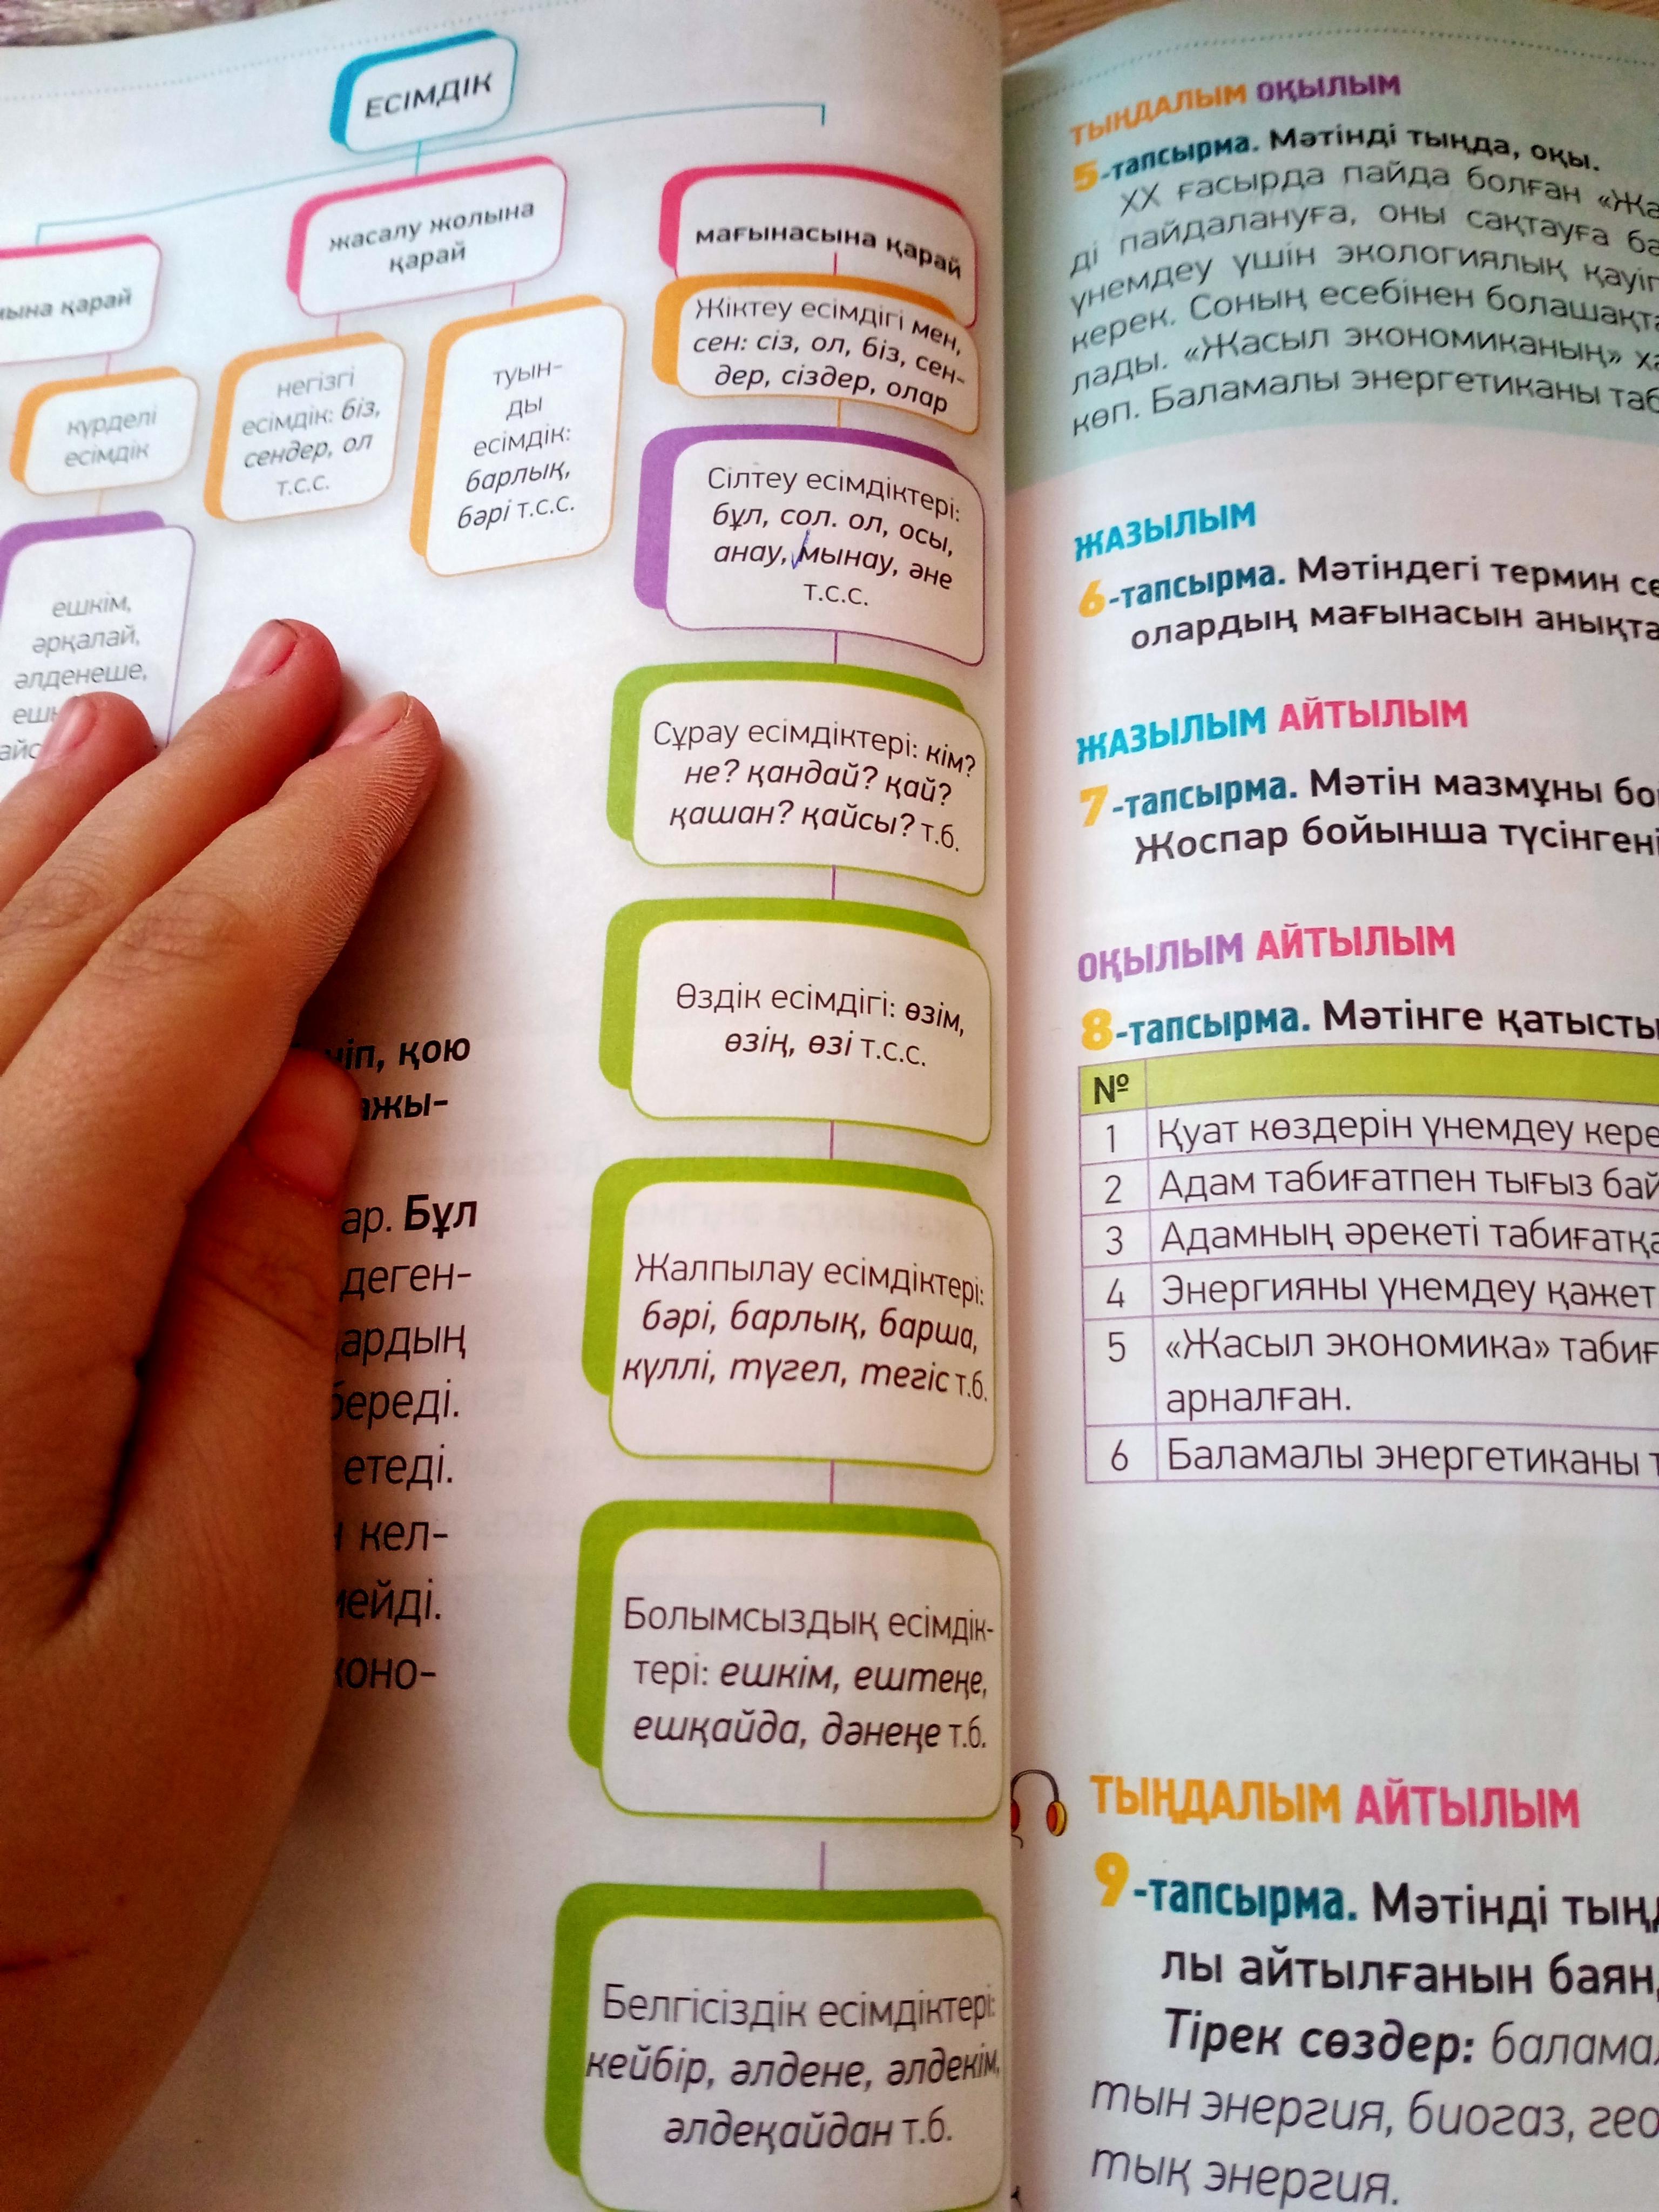 ЕСІМДІК
қарай
күрделі
есімдік
ешкім,
әрқалай,
әлденеше,
жасалу жолына
қарай
негізгі
есімдік: біз,
сендер, ол
т.с.с.
туын-
ды
есімдік:
барлық,
бәрі т.с.с.
мағынасына қарай
Жіктеу есімдігі мен,
сен: сіз, ол, біз, сен-
дер, сіздер, олар
Сілтеу есімдіктері:
бұл, сол. ол, осы,
анау, мынау, әне
т.с.с.
Сұрау есімдіктері: кім?
не? қандай? қай?
қашан? қайсы? т.б.
Өздік есімдігі: өзім,
өзің, өзі т.с.с.
Жалпылау есімдіктері:
бәрі, барлық, барша,
күллі, түгел, тегіс т.б.
Болымсыздық есімдік-
тері: ешкім, ештеңе,
ешқайда, дәнеңе т.б.
Белгісіздік есімдіктері:
кейбір, әлдене, әлдекім,
әлдеқайдан т.б.
қою
Бұл
деген-
етеді.
кел-
ТЫҢДАЛЫМ ОҚЫЛЫМ
5-тапсырма. Мәтінді тыңда, оқы.
ХХ ғасырда пайда болған
ді пайдалануға, оны сақтауға
үнемдеу үшін экологиялық
керек. Соның есебінен
лады. «Жасыл экономиканың»
көп. Баламалы энергетиканы
ЖАЗЫЛЫМ
6-тапсырма. Мәтіндегі термин
олардың мағынасын
ЖАЗЫЛЫМ АЙТЫЛЫМ
7-тапсырма. Мәтін мазмұны
Жоспар бойынша
ОҚЫЛЫМ АЙТЫЛЫМ
8-тапсырма. Мәтінге қатысты
№
1 Қуат көздерін үнемдеу
2 Адам табиғатпен тығыз
3 Адамның әрекеті
4 Энергияны үнемдеу қажет
5 «Жасыл экономика»
арналған.
6 Баламалы энергетиканы
ТЫҢДАЛЫМ АЙТЫЛЫМ
9-тапсырма. Мәтінді
лы айтылғанын
Тірек сөздер:
тын энергия, биогаз,
тық энергия.